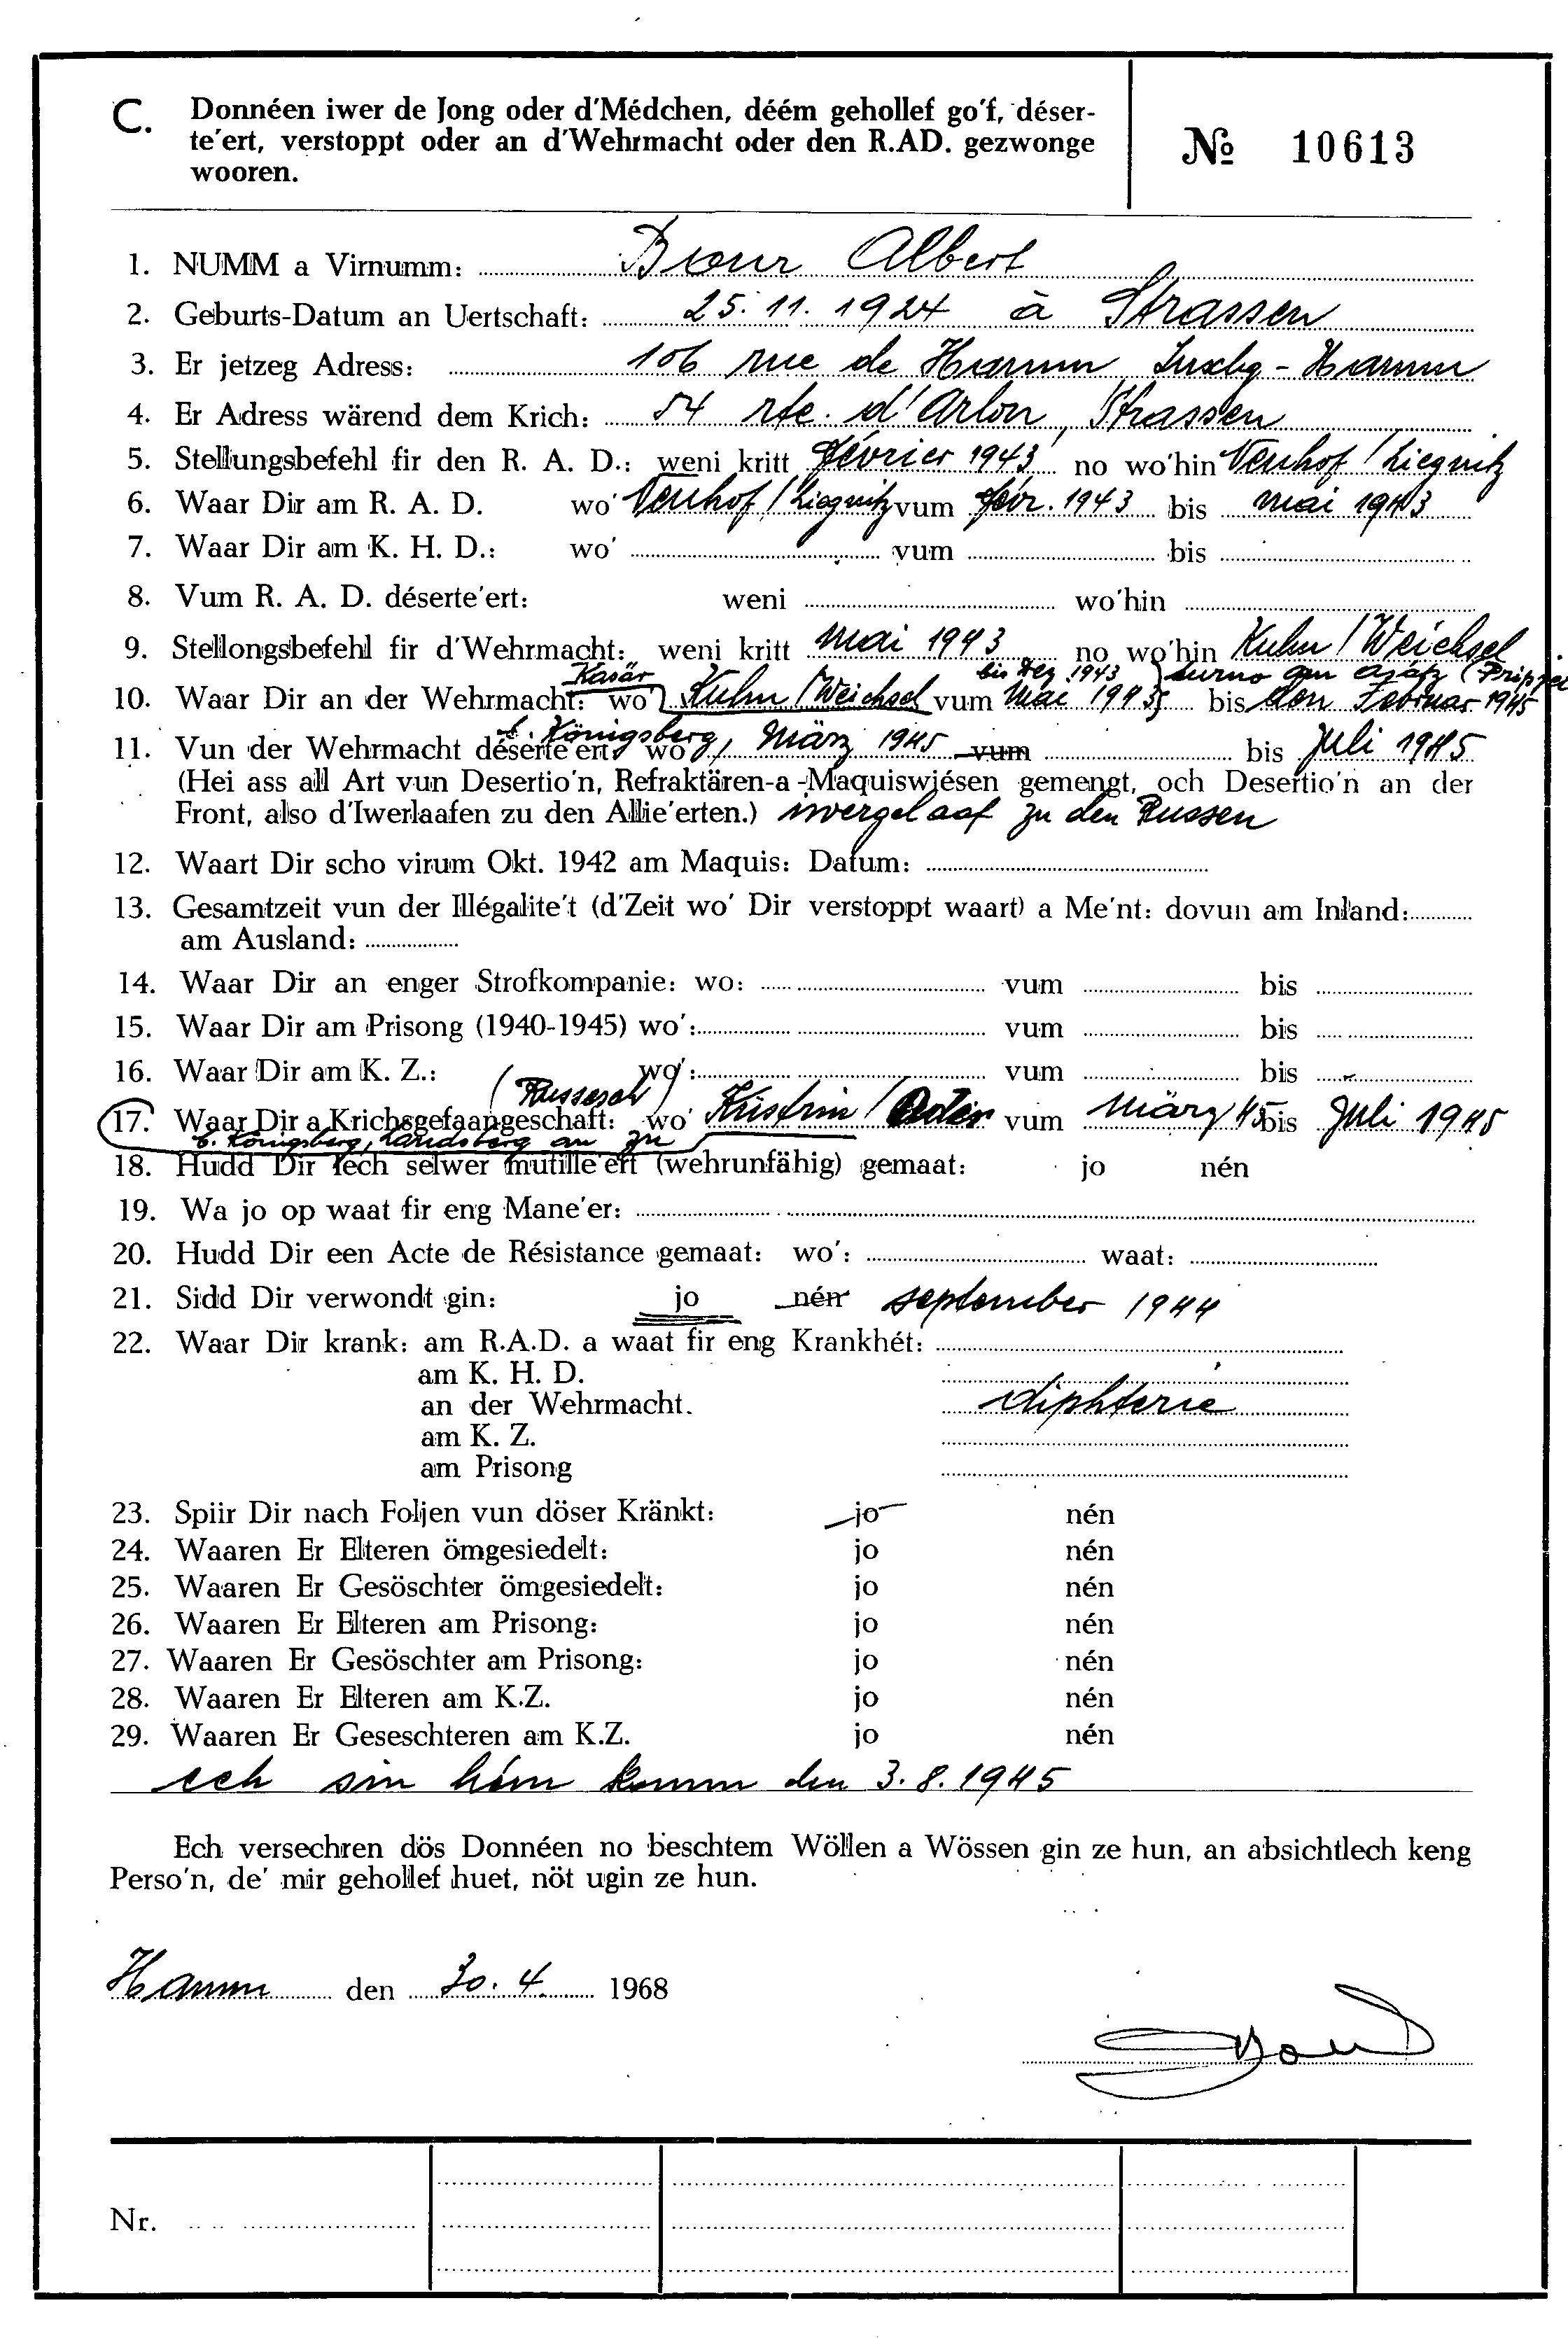 C. Donnéen iwer de Jong oder d'Médchen, déém gehollef go'f, déser-
te'ert, verstoppt oder an d'Wehrmacht oder den R.AD. gezwonge
wooren.
№ 10613
1. NUMM a Virnumm: Albert
2. Geburts-Datum an Uertschaft: 25.11.1924 à Strassen
3. Er jetzeg Adress: 106 rue de Hamm Luxbg-Hamm
4. Er Adress wärend dem Krich: 54 rte. d'Arlon, Strassen
5. Stellungsbefehl fir den R. A. D.: weni kritt février 1943 no wo'hin Neuhof/Liegnitz
6. Waar Dir am R. A. D. wo' Neuhof/Liegnitz vum févr. 1943 bis mai 1943
7. Waar Dir am K. H. D.: wo' vum bis
8. Vum R. A. D. déserte'ert: weni wo'hin
9. Stellongsbefehl fir d'Wehrmacht: weni kritt Mai 1943 no wo'hin Kulm/Weichsel
Kasär bis Dez 1943 durno am
10. Waar Dir an der Wehrmacht: wo' Kulm/Weichsel vum Mai 1943 bis Februar 1945
b. Königsberg, März 1945
11. Vun der Wehrmacht déserte'ert wo vum bis Juli 1945
(Hei ass all Art vun Desertio'n, Refraktären-a-Maquiswiésen gemengt, och Desertio'n an der
Front, also d'Iwerlaafen zu den Allie'erten.) iwergelaaf zu den Russen
12. Waart Dir scho virum Okt. 1942 am Maquis: Datum:
13. Gesamtzeit vun der Illégalite't (d'Zeit wo' Dir verstoppt waart) a Me'nt: dovun am Inland:
am Ausland:
14. Waar Dir an enger Strofkompanie: wo: vum bis
15. Waar Dir am Prisong (1940-1945) wo': vum bis
16. Waar Dir am K. Z.: wo': vum bis
(Russesch)
17. Waar Dir a Krichsgefaangeschaft: wo' Küstrin/Oder vum März 45 bis Juli 1945
b. Königsberg, Landsberg an zu
18. Hudd Dir Iech selwer mutille'ert (wehrunfähig) gemaat: jo nén
19. Wa jo op waat fir eng Mane'er:
20. Hudd Dir een Acte de Résistance gemaat: wo': waat:
21. Sidd Dir verwondt gin: jo nén september 1944
22. Waar Dir krank: am R.A.D. a waat fir eng Krankhét:
am K. H. D.
an der Wehrmacht. diphterie
am K. Z.
am Prisong
23. Spiir Dir nach Foljen vun döser Kränkt: jo nén
24. Waaren Er Elteren ömgesiedelt: jo nén
25. Waaren Er Gesöschter ömgesiedelt: jo nén
26. Waaren Er Elteren am Prisong: jo nén
27. Waaren Er Gesöschter am Prisong: jo nén
28. Waaren Er Elteren am K.Z. jo nén
29. Waaren Er Geseschteren am K.Z. jo nén
ech sin hém komm den 3.8.1945
Ech versechren dös Donnéen no beschtem Wöllen a Wössen gin ze hun, an absichtlech keng
Perso'n, de' mir gehollef huet, nöt ugin ze hun.
Hamm den 30.4. 1968
Nr.